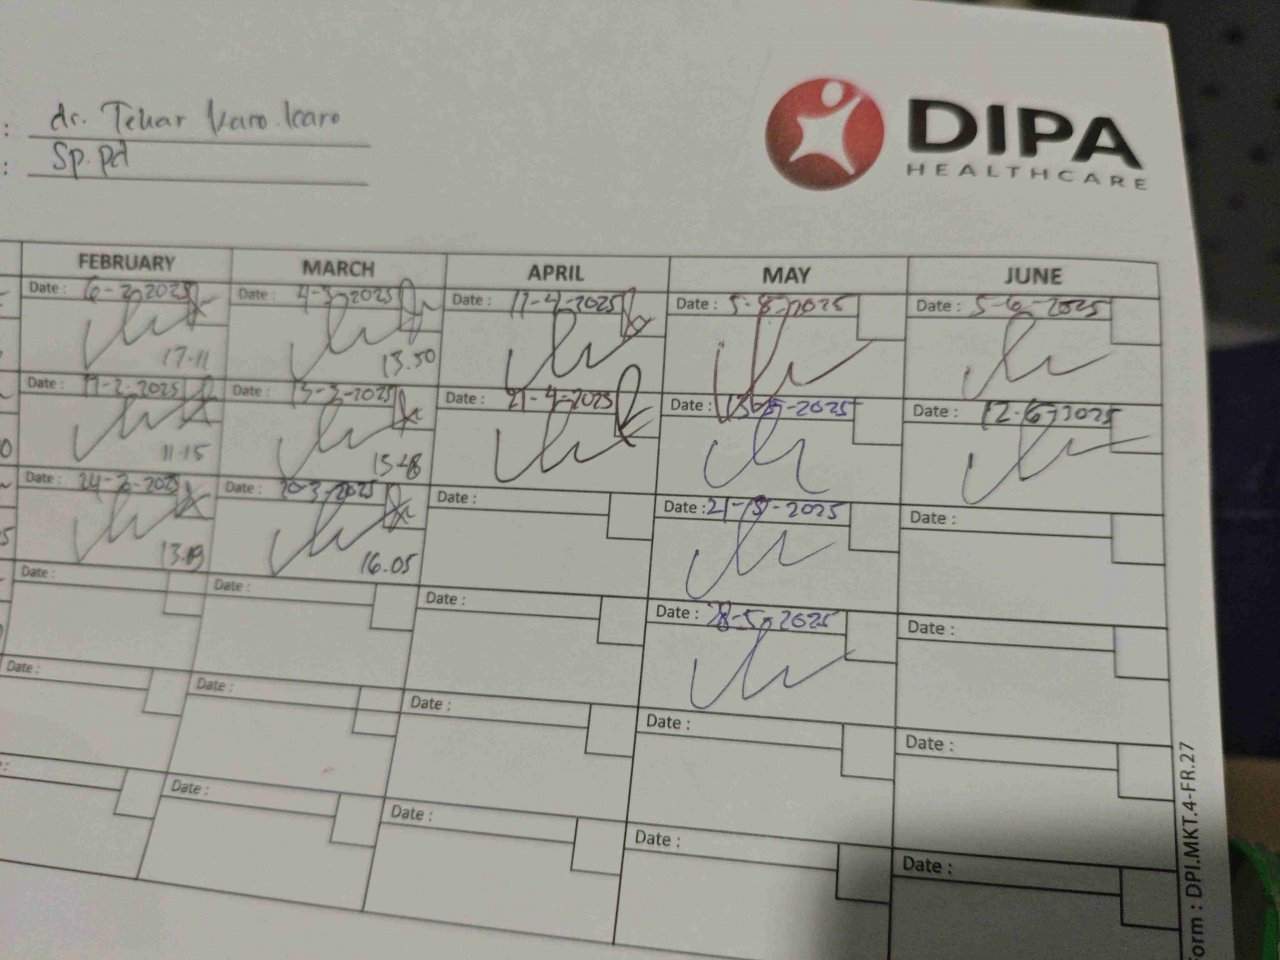 : dr. Tehar Karo.karo
: Sp.pd
DIPA
HEALTHCARE
FEBRUARY MARCH APRIL MAY JUNE
Date : 6-2-2025 Date : 4-3-2025 Date : 17-4-2025 Date : 5-8-2025 Date : 5-6-2025
17.11 13.50
Date : 19-2-2025 Date : 13-3-2025 Date : 21-4-2025 Date : 13-5-2025 Date : 12-6-2025
11.15 15.48
Date : 24-2-2025 Date : 20-3-2025 Date : Date : 21-5-2025 Date :
13.19 16.05
Date : Date : Date : Date : 28-5-2025 Date :
Date : Date : Date : Date : Date :
Date : Date : Date : Date :
Form : DPI.MKT.4-FR.27